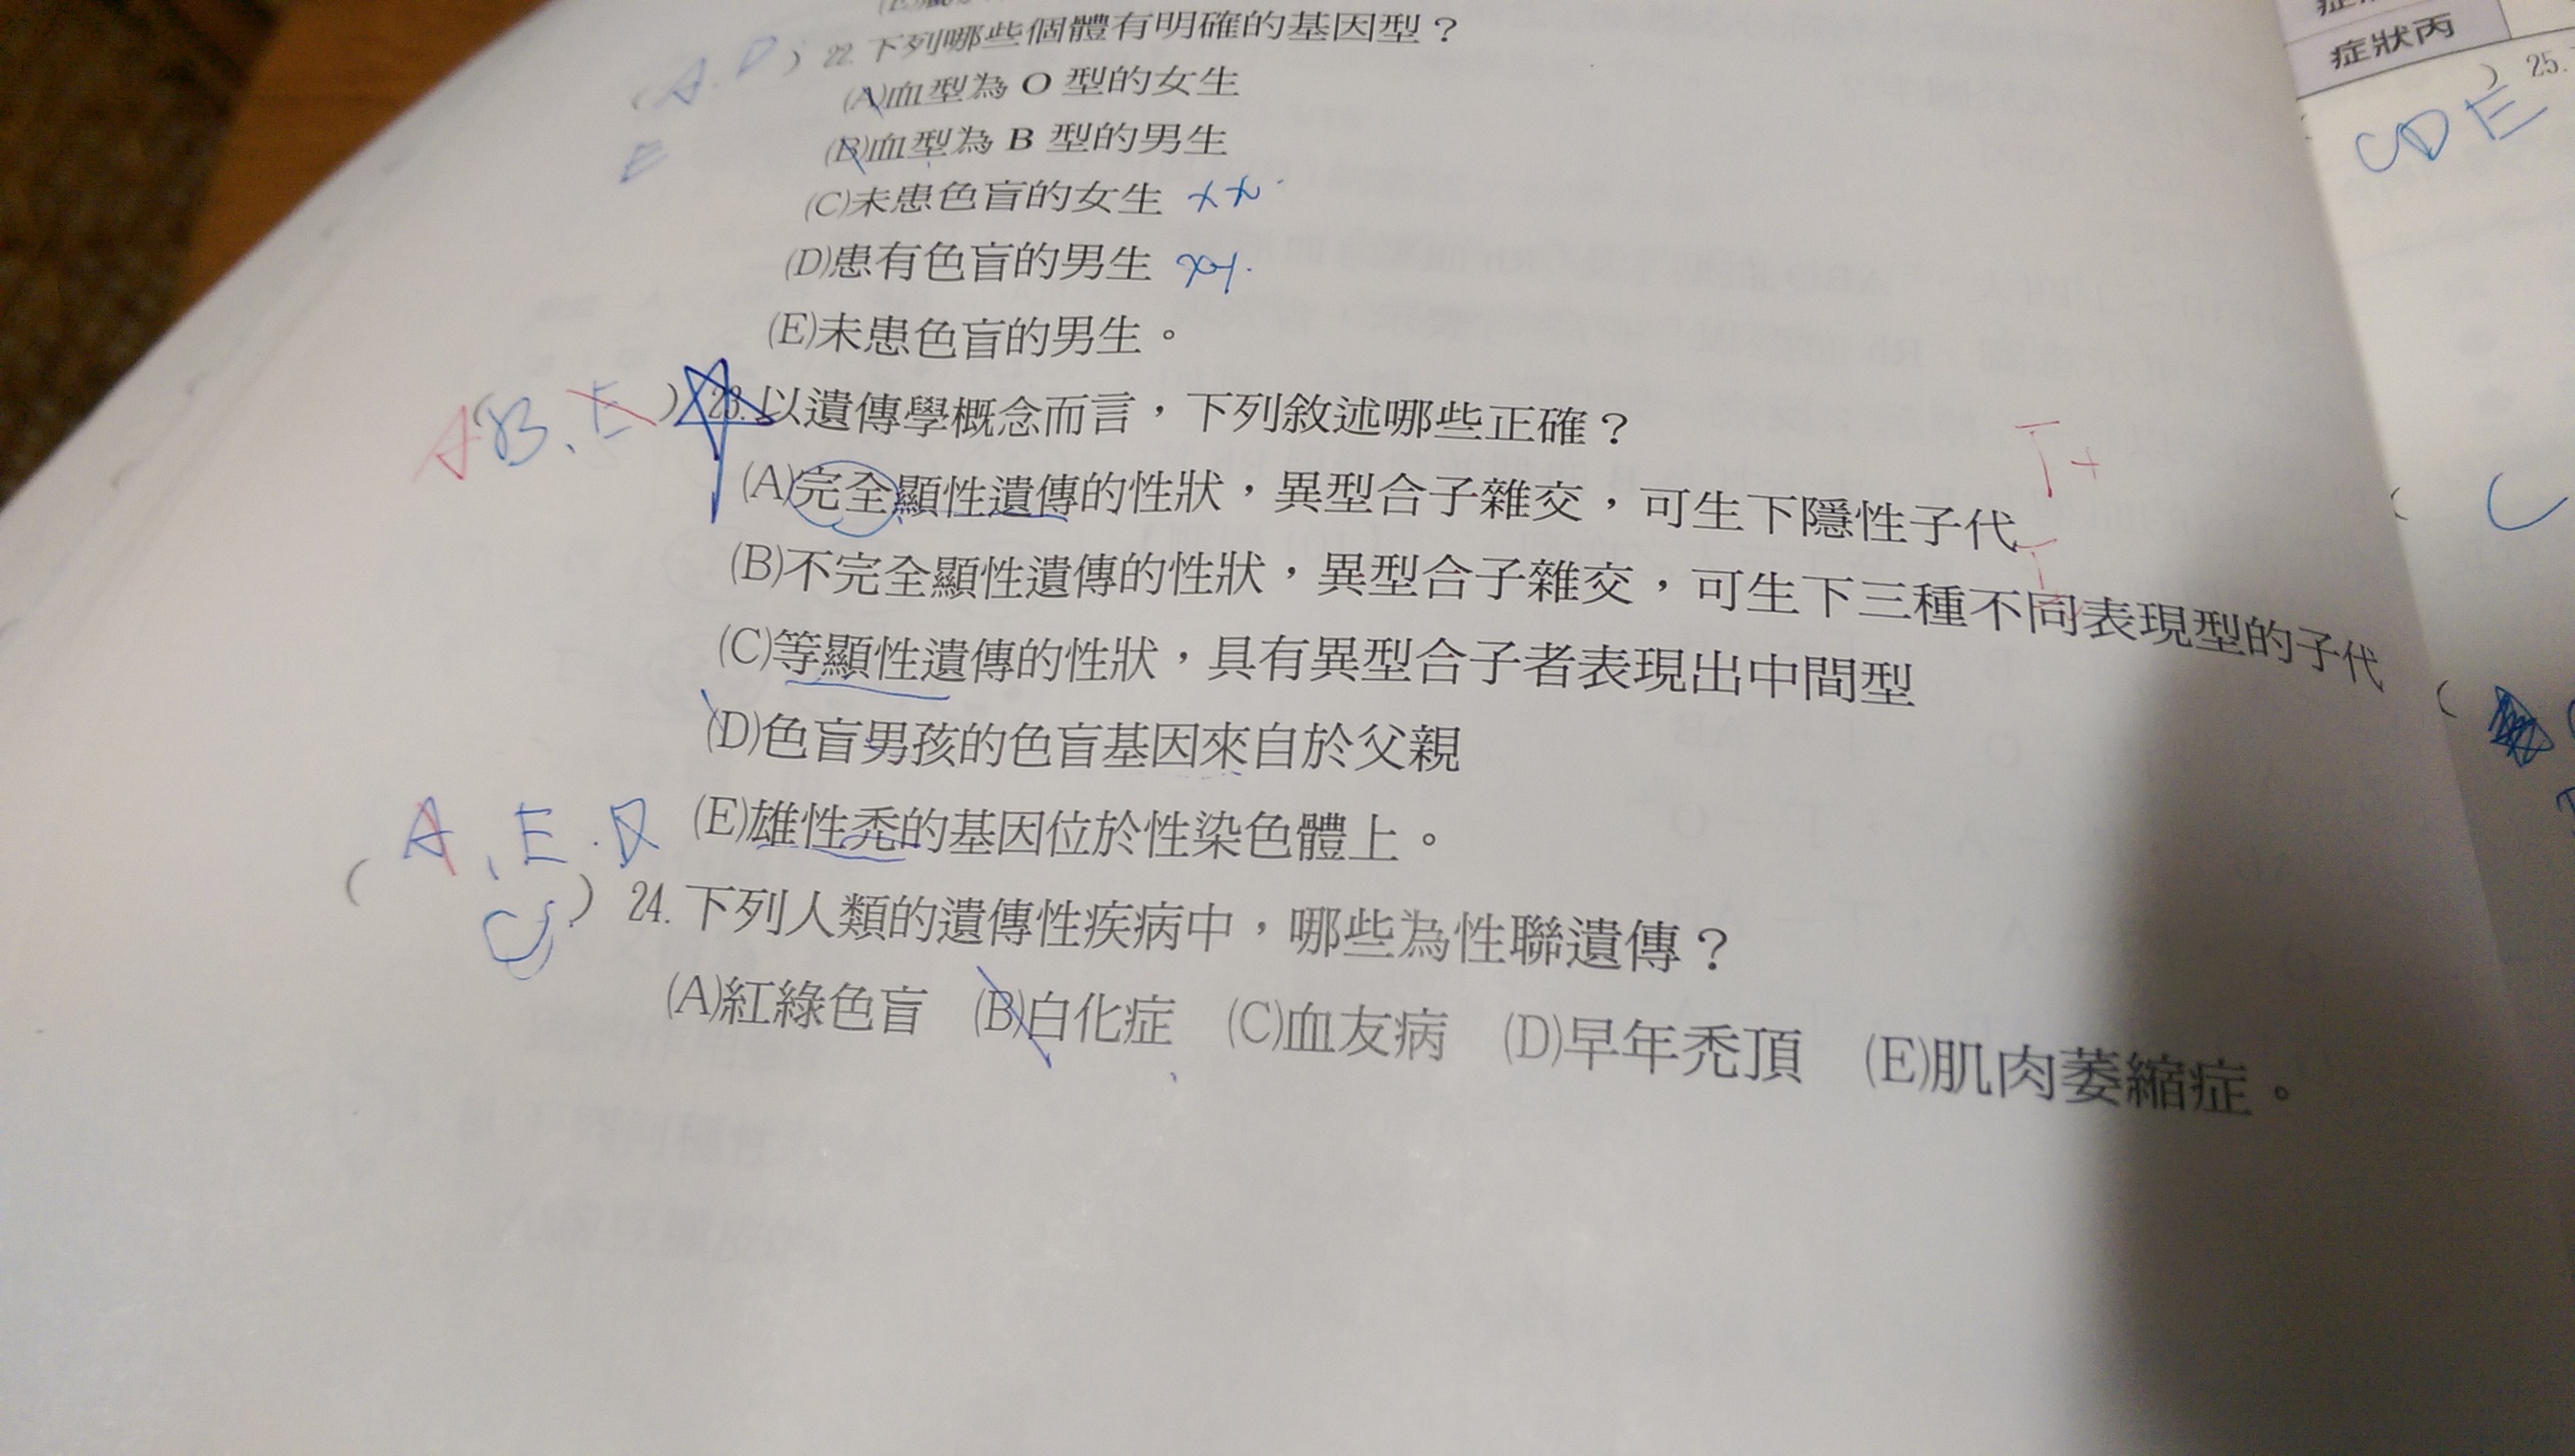 症狀丙
( A.D ) 22. 下列哪些個體有明確的基因型？
E
(A)血型為 O 型的女生
(B)血型為 B 型的男生
(C)未患色盲的女生 xx
(D)患有色盲的男生 xy.
(E)未患色盲的男生。
AB、E ) 23. 以遺傳學概念而言，下列敘述哪些正確？
(A)完全顯性遺傳的性狀，異型合子雜交，可生下隱性子代
(B)不完全顯性遺傳的性狀，異型合子雜交，可生下三種不同表現型的子代
(C)等顯性遺傳的性狀，具有異型合子者表現出中間型
(D)色盲男孩的色盲基因來自於父親
(E)雄性禿的基因位於性染色體上。
A、E.D
( C ) 24. 下列人類的遺傳性疾病中，哪些為性聯遺傳？
(A)紅綠色盲 (B)白化症 (C)血友病 (D)早年禿頂 (E)肌肉萎縮症。
) 25.
CDE
( C